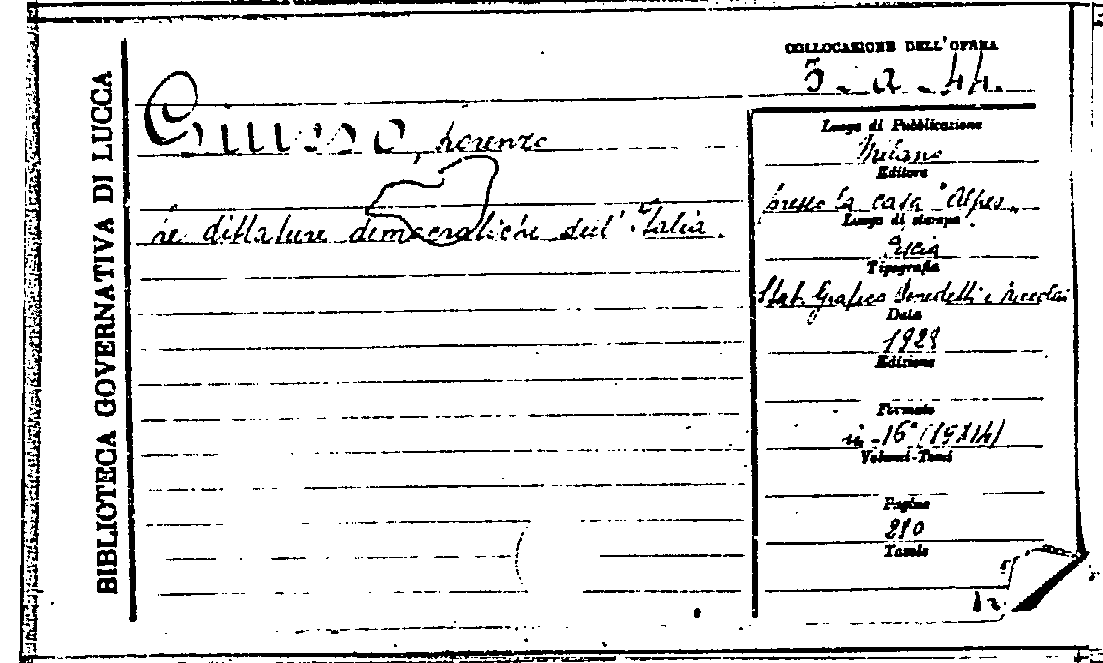 BIBLIOTECA GOVERNATIVA DI LUCCA
COLLOCAZIONE DELL'OPERA
3. a. 44.
Lorenzo
Le dittature democratiche dell' Italia.
Luogo di Pubblicazione
Milano
Editore
presso la casa "Alpes„
Luogo di stampa
Pescia
Tipografia
Stab. Grafico Benedetti e Niccolai
Data
1928
Edizione
Formato
in-16° (19X14)
Volumi-Tomi
Pagine
210
Tavole